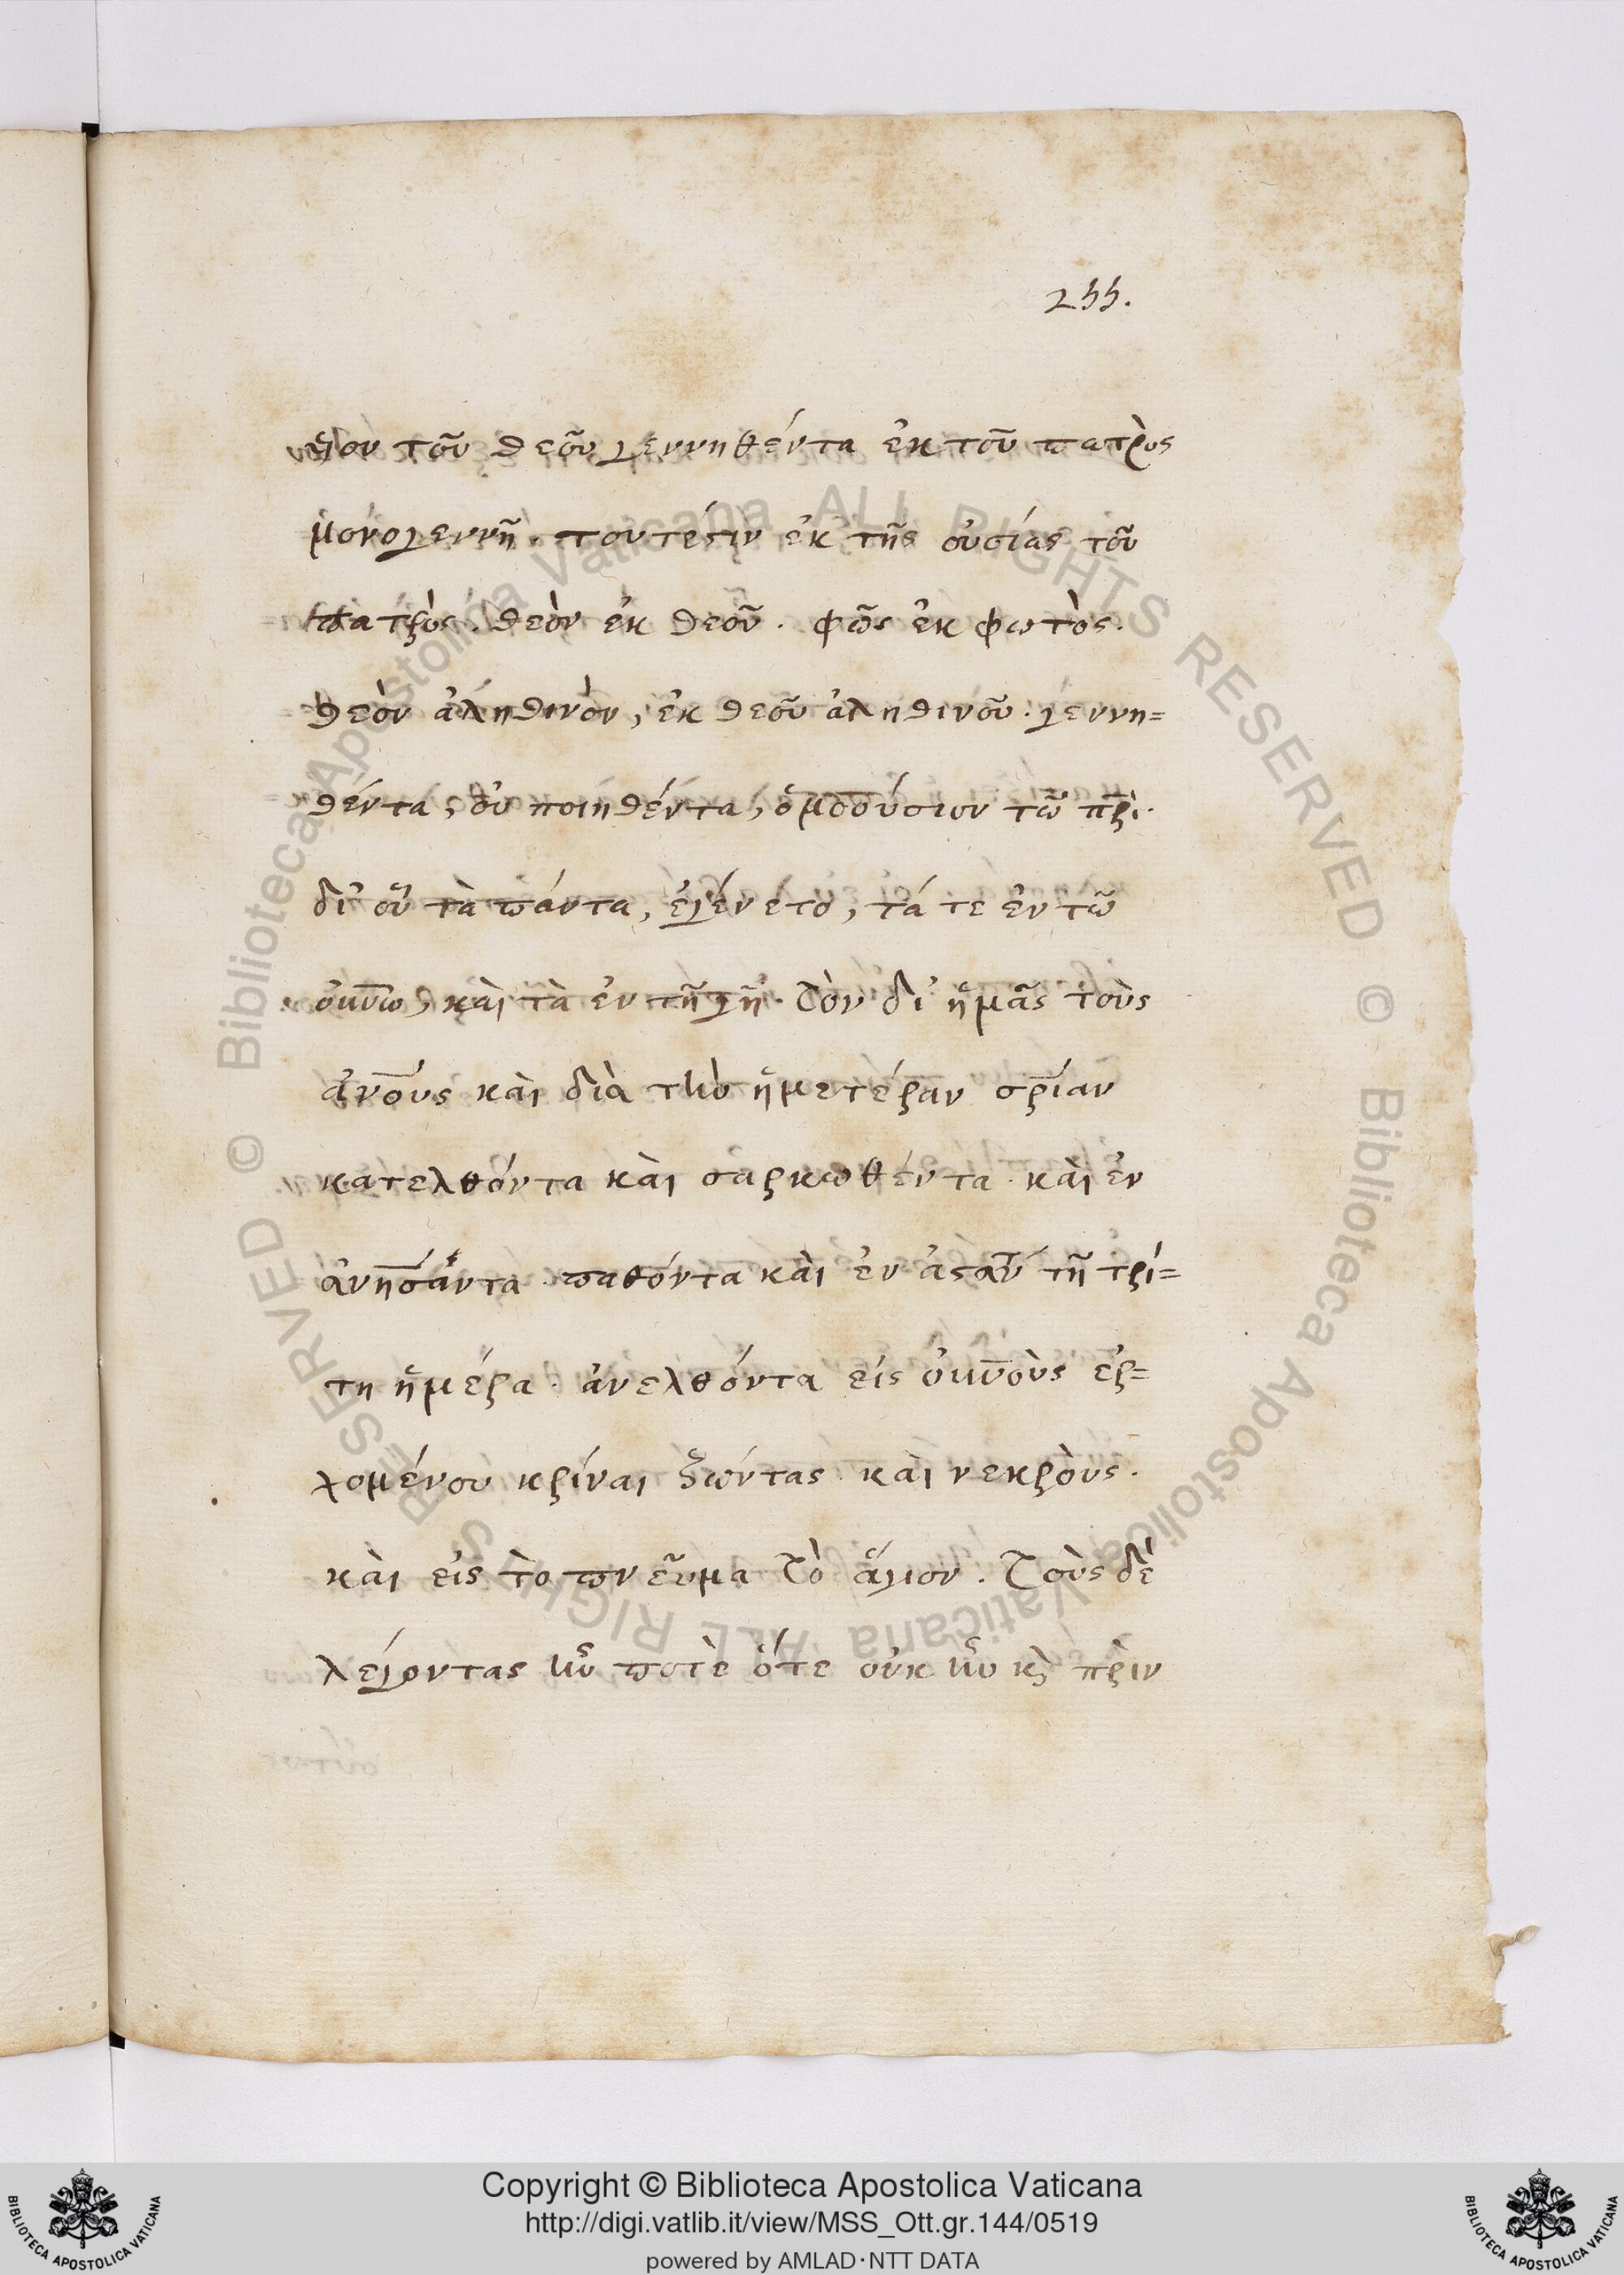 255.
υἱὸν τοῦ θεοῦ γεννηθέντα ἐκ τοῦ πατρὸς
μονογεννῆ. τουτέστιν ἐκ τῆς οὐσίας τοῦ
πατρὸς. θεὸν ἐκ θεοῦ. φῶς ἐκ φωτὸς.
θεὸν ἀληθινὸν, ἐκ θεοῦ ἀληθινοῦ. γεννη=
θέντα, οὐ ποιηθέντα, ὁμοούσιον τῶ πρὶ.
δι' οὗ τὰ πάντα, ἐγένετο, τά τε ἐν τῶ
οὐνῶ, καὶ τὰ ἐν τῆ γῆ. τὸν δι' ἡμᾶς τοὺς
ἀνους καὶ διὰ τὴν ἡμετέραν σρίαν
κατελθόντα καὶ σαρκωθέντα. καὶ ἐν
παθόντα καὶ τῆ τρί=
τη ἡμέρα. ἀνελθόντα εἰς οὐνοὺς ἐρ=
χομένου κρίναι ζώντας καὶ νεκρὸυς.
καὶ εἰς τὸ πνεῦμα τὸ ἅγιον. τοὺς δὲ
λέγοντας ἦν ποτὲ ὅτε οὐκ ἦν κὶ πρὶν
Copyright © Biblioteca Apostolica Vaticana
http://digi.vatlib.it/view/MSS_Ott.gr.144/0519
powered by AMLAD·NTT DATA
BIBLIOTECA APOSTOLICA VATICANA
BIBLIOTECA APOSTOLICA VATICANA
© Biblioteca Apostolica Vaticana ALL RIGHTS RESERVED
© Biblioteca Apostolica Vaticana ALL RIGHTS RESERVED